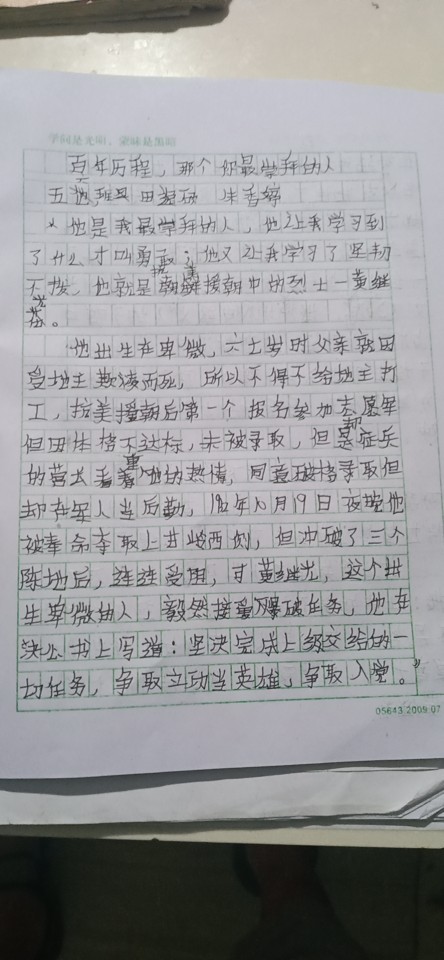 学问是光明，蒙昧是黑暗
百年历程，那个你最崇拜的人
五 班
他是我最崇拜的人，他让我学习到
了什么才叫勇敢；他又让我学习了坚韧
不拔，他就是抗美援朝中的烈士—黄继
光。
他出生在卑微，六七岁时父亲就因
受地主欺凌而死，所以不得不给地主打
工，抗美援朝后第一个报名参加志愿军
但因体格不达标，未被录取，但是征兵
的营长看重他的热情，同意破格录取但
却在军人当后勤，1952年10月19日夜晚他
被奉命夺取上甘岭西侧，但冲破了三个
阵地后，连连受阻，可黄继光，这个出
生卑微的人，毅然接受爆破任务，他在
决心书上写道：坚决完成上级交给的一
切任务，争取立功当英雄，争取入党。”
05643 2009.07